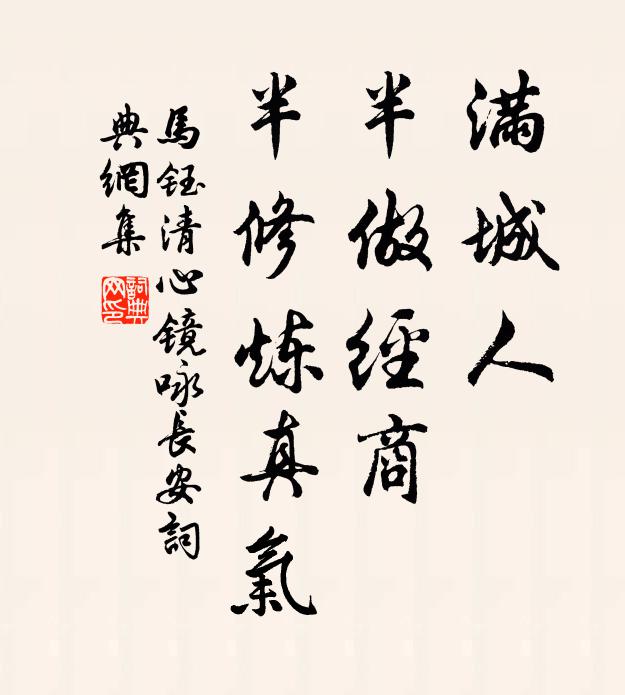 滿城人
半做經商
半修炼真氣
馬鈺清心镜咏長安詞
典網集
詞典网印